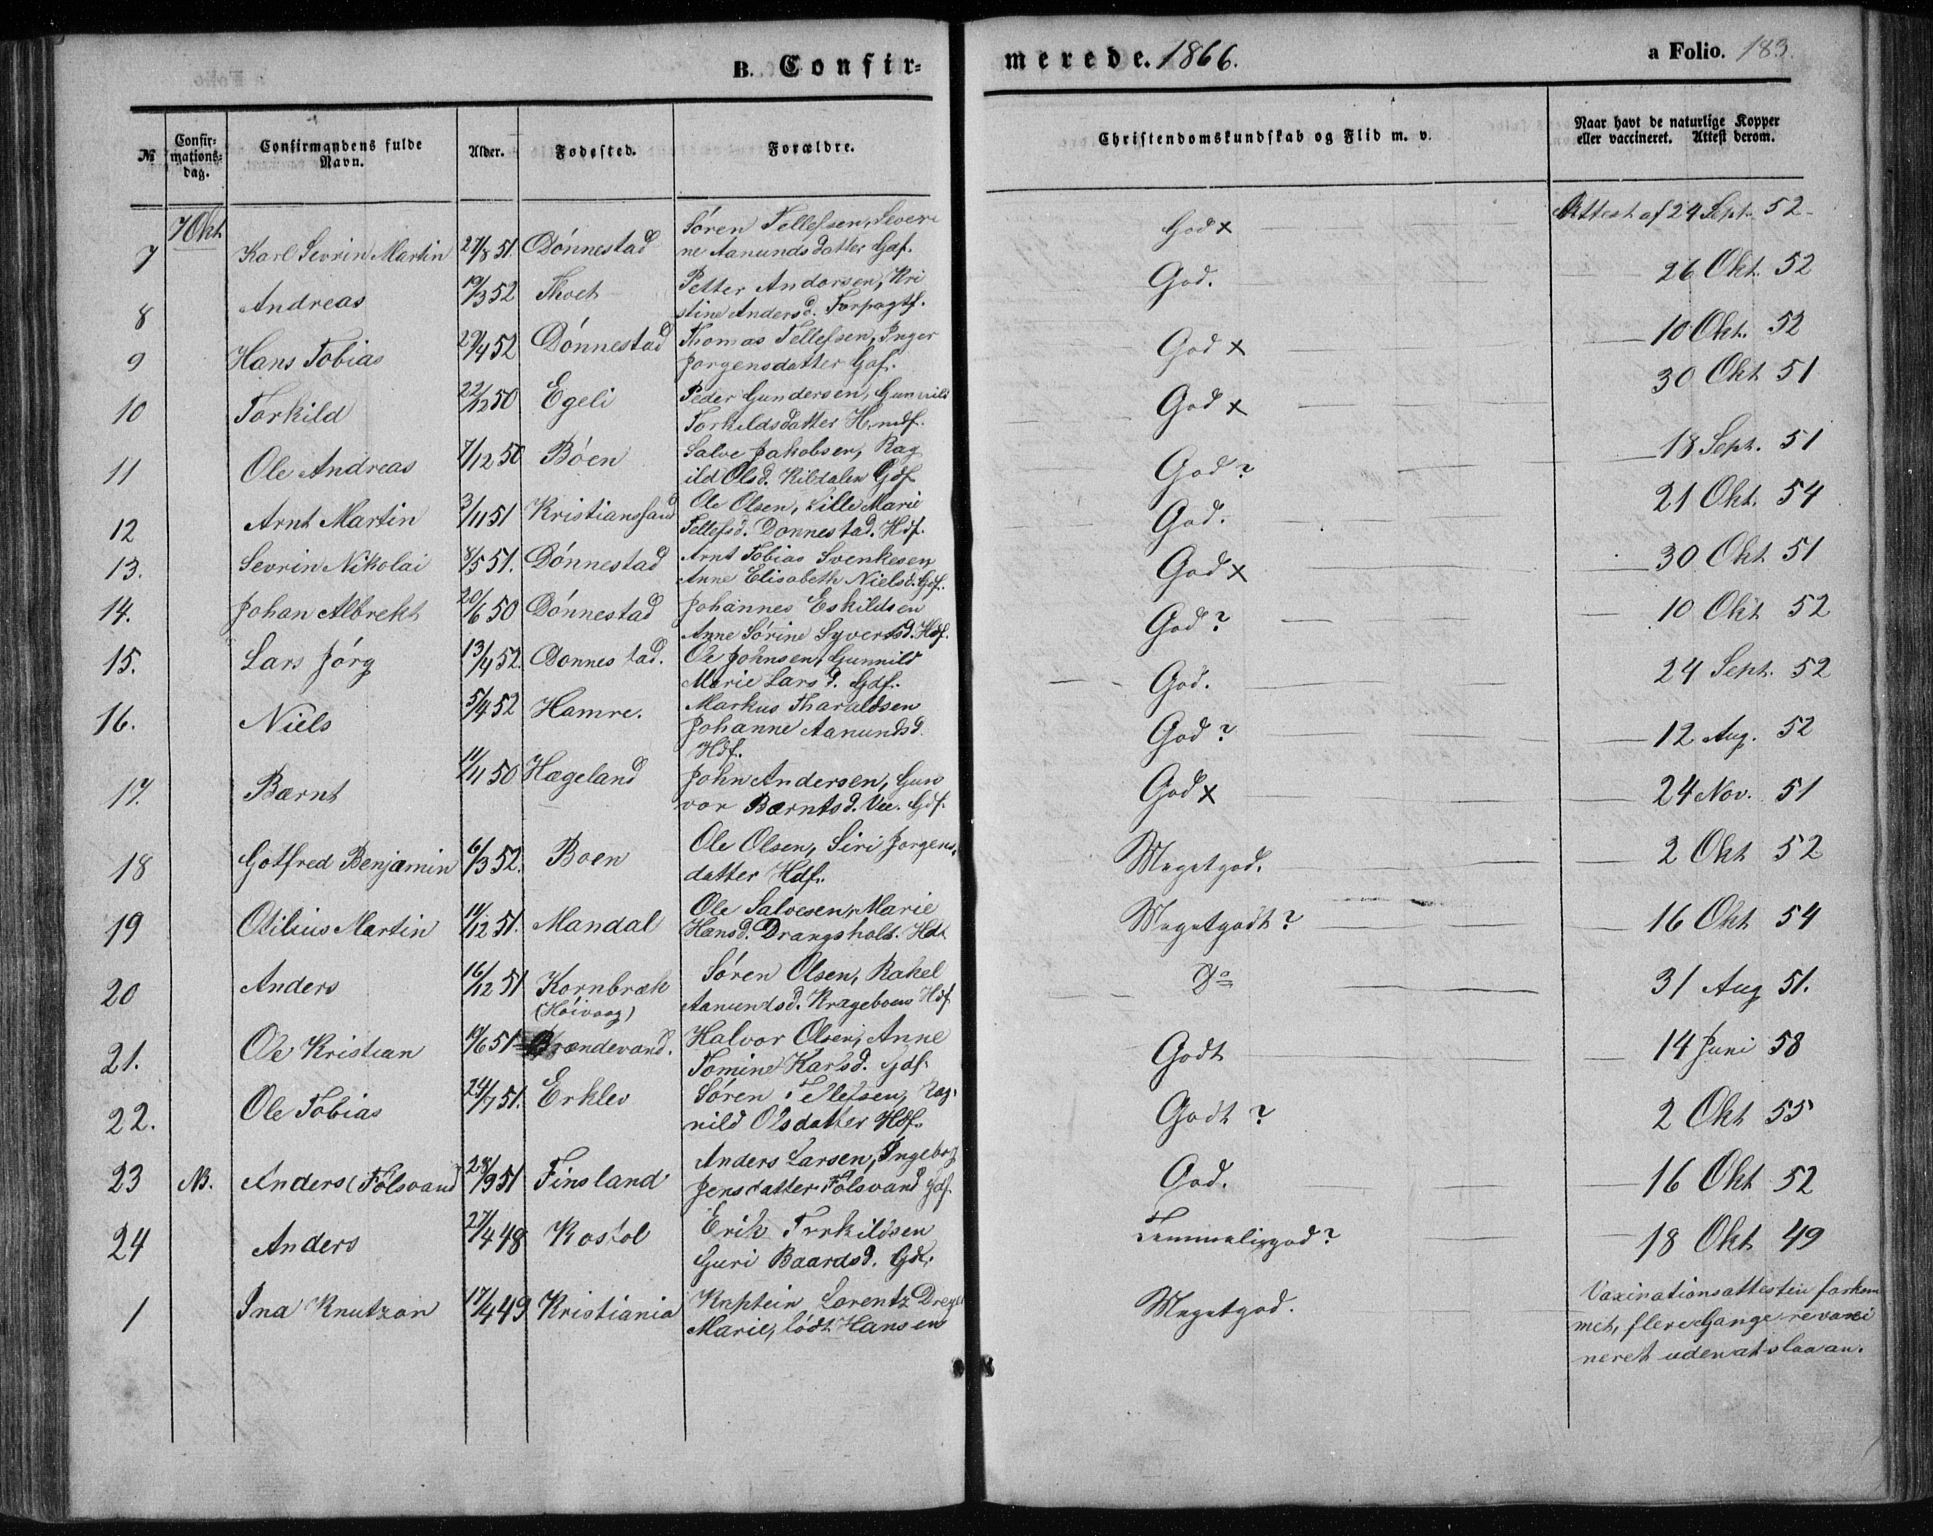 B. Confir=
merede. 1866.
a Folio. 183.
№
Confir-
mations-
dag.
Confirmandens fulde
Navn.
Alder.
Fødested.
Forældre.
Christendomskundskab og Flid m. v.
Naar havt de naturlige Kopper
eller vaccineret. Attest derom.
7 7 Okt Karl Sevrin Martin 27/8 51. Dónnestad Sóren Tellefsen, Severi
ne Aanundsdatter Gaf. God x Attest af 24 Sept. 52
8 Andreas 19/3 52 Tkoet Petter Andersen, Kri
stine Andersd. Forpagtf. God. 26 Okt. 52
9 Hans Tobias 29/4 52 Dónnestad Thomas Tellefsen, Inger
Jorgensdatter Gaf. God x 10 Okt. 52
10 Torkild 22/12 50 Egeli Peder Gundersen, Gunnild
Torkildsdatter Hmdf. God x 30 Okt 51
11 Ole Andreas 7/12 50 Bóen Salve Jakobsen, Rag
ild Olsd. Kildalen Gdf God? 18 Sept. 51
12 Arnt Martin 3/11 51 Kristianssand Ole Olsen, Lille Marie
Tellefsd. Donnestad. Hdf. God. 21 Okt. 54
13. Sevrin Nikolai 8/5 51. Dónnestad Arnt Tobias Svenkesen
Anne Elisabeth Nielsd. Gdf. God x 30 Okt 51
14. Johan Albrekt 20/6 50 Dónnestad Johannes Eskildsen
Anne Sórine Syvertsd. Hdf. God? 10 Okt 52
15. Lars Jórg 13/4 52. Donnestad. Ole Johnsen, Gunnild
Marie Larsd. Gdf. God. 24 Sept. 52
16. Niels 5/4 52 Hamre. Markus Tharaldsen
Johanne Aanundsd.
Hdf. God? 12 Aug. 52
17. Bærnt 11/11 50 Hægeland John Andersen, Gun
vor Bærntsd. Vee. Gdf. God x 24 Nov. 51
18 Gotfred Benjamin 6/3 52. Boen Ole Olsen, Siri Jorgens
datter Hdf. Megetgod. 2 Okt 52
19 Otilius Martin 11/12 51. Mandal Ole Salvesen, Marie
Hansd. Drangsholt. Hdf Megetgodt? 16 Okt 54
20 Anders 16/12 51 Kornbræk
(Hóivaag) Sóren Olsen, Rakel
Aanundsd. Krageboen Hdf Do 31 Aug 51.
21. Ole Kristian 19/6 51 Brændevand. Halvor Olsen, Anne
Tomine Karlsd. Gdf. Godt 14 Juni 58
22. Ole Tobias 24/7 51. Erklev Sóren Tellefsen, Rag-
nild Olsdatter Hdf. Godt? 2 Okt 55
23 NB. Anders (Fólsvand 28/9 51 Finsland Anders Larsen, Ingeborg
Jensdatter Fólsvand Gdf. God. 16 Okt 52
24 Anders 27/4 48 Kostol Erik Torkildsen
Guri Baardsd. Gdf. Temmeliggod? 18 Okt 49
1 Ina Knutzon 17/4 49 Kristiania Kaptein Lorentz Dreyer
Marie, fódt Hansen Megetgod. Vaxinationsattesten forkom
met, flere Gange revaxi
neret uden at slaa an.